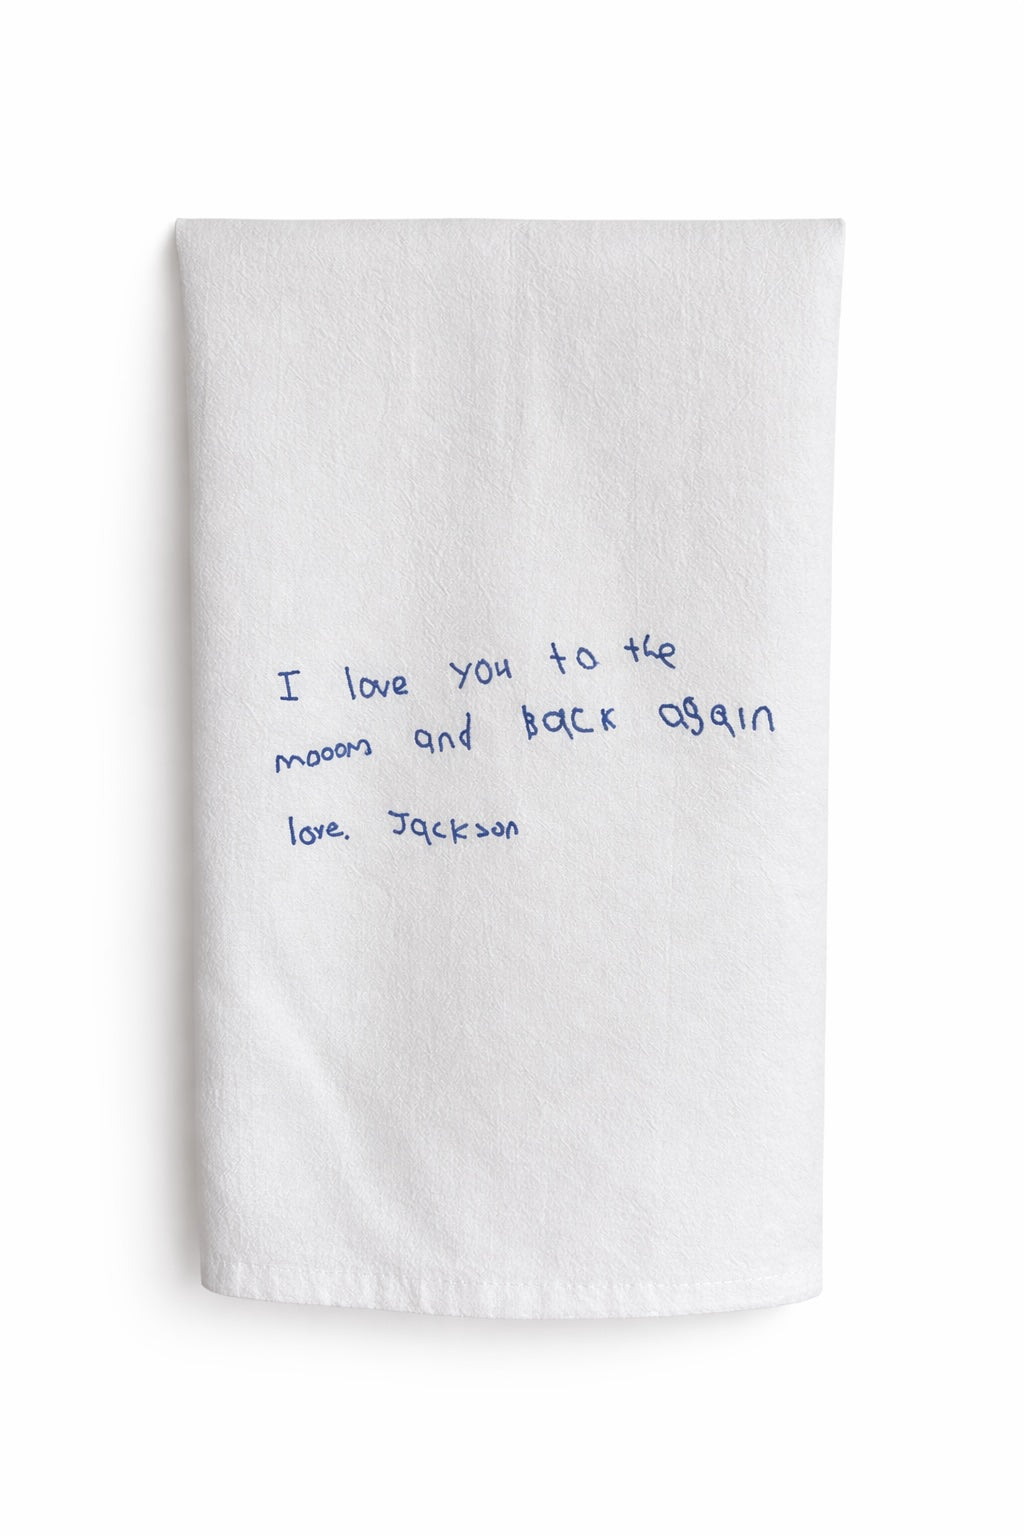 I love you to the
mooon and back again
love. Jackson